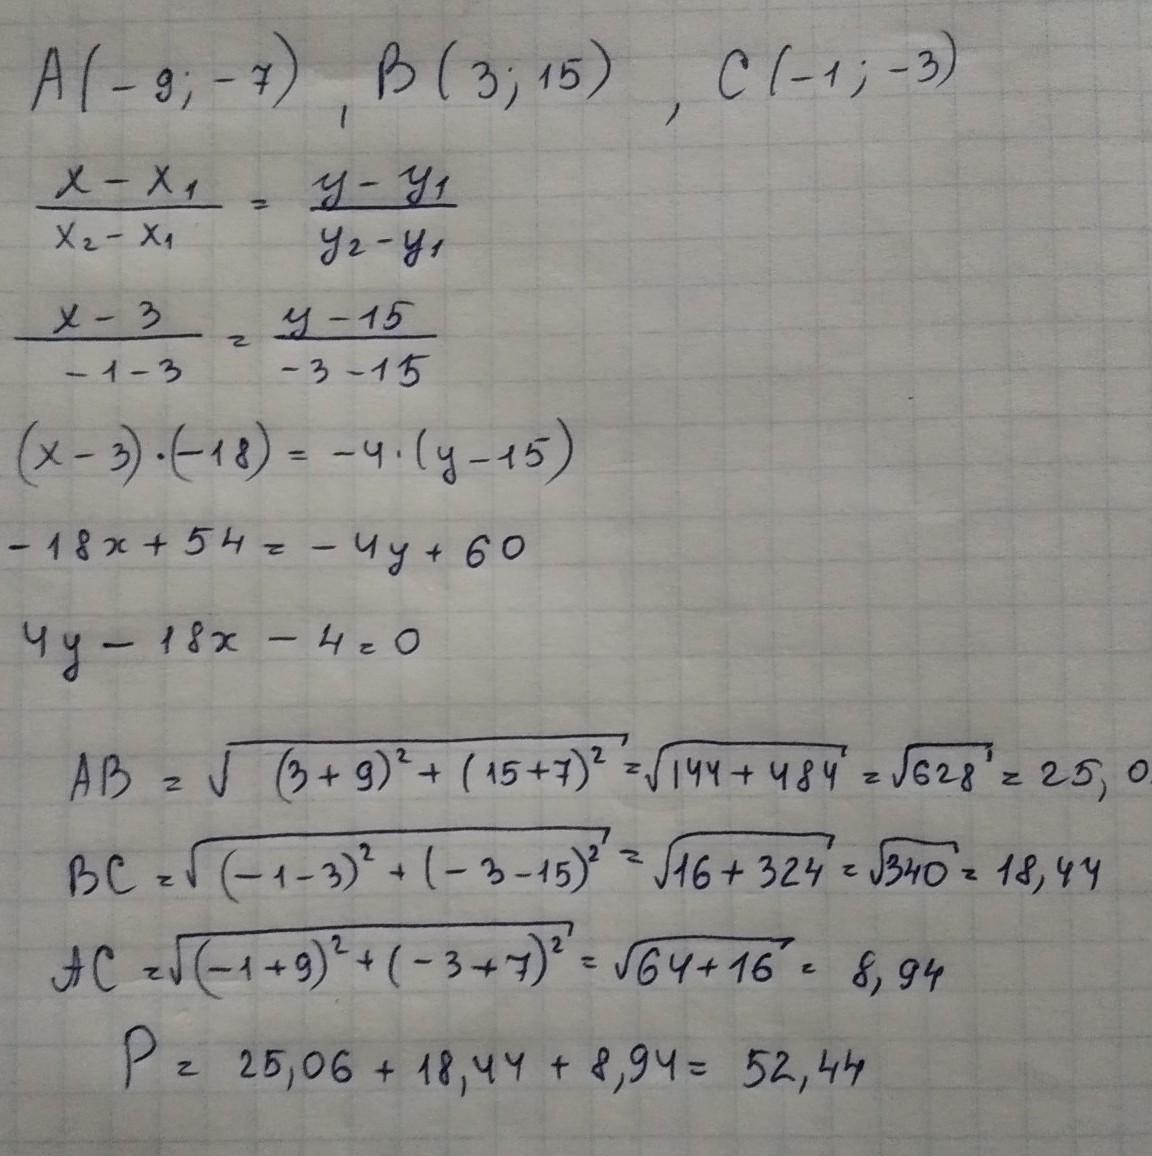 A(-9; -7) , B(3; 15) , C(-1; -3)
(x - x₁)/(x₂ - x₁) = (y - y₁)/(y₂ - y₁)
(x - 3)/(-1 - 3) = (y - 15)/(-3 - 15)
(x - 3)·(-18) = -4·(y - 15)
-18x + 54 = -4y + 60
4y - 18x - 4 = 0
AB = √((3 + 9)² + (15 + 7)²) = √(144 + 484) = √628 = 25,0
BC = √((-1 - 3)² + (-3 - 15)²) = √(16 + 324) = √340 = 18,44
AC = √((-1 + 9)² + (-3 + 7)²) = √(64 + 16) = 8,94
P = 25,06 + 18,44 + 8,94 = 52,44